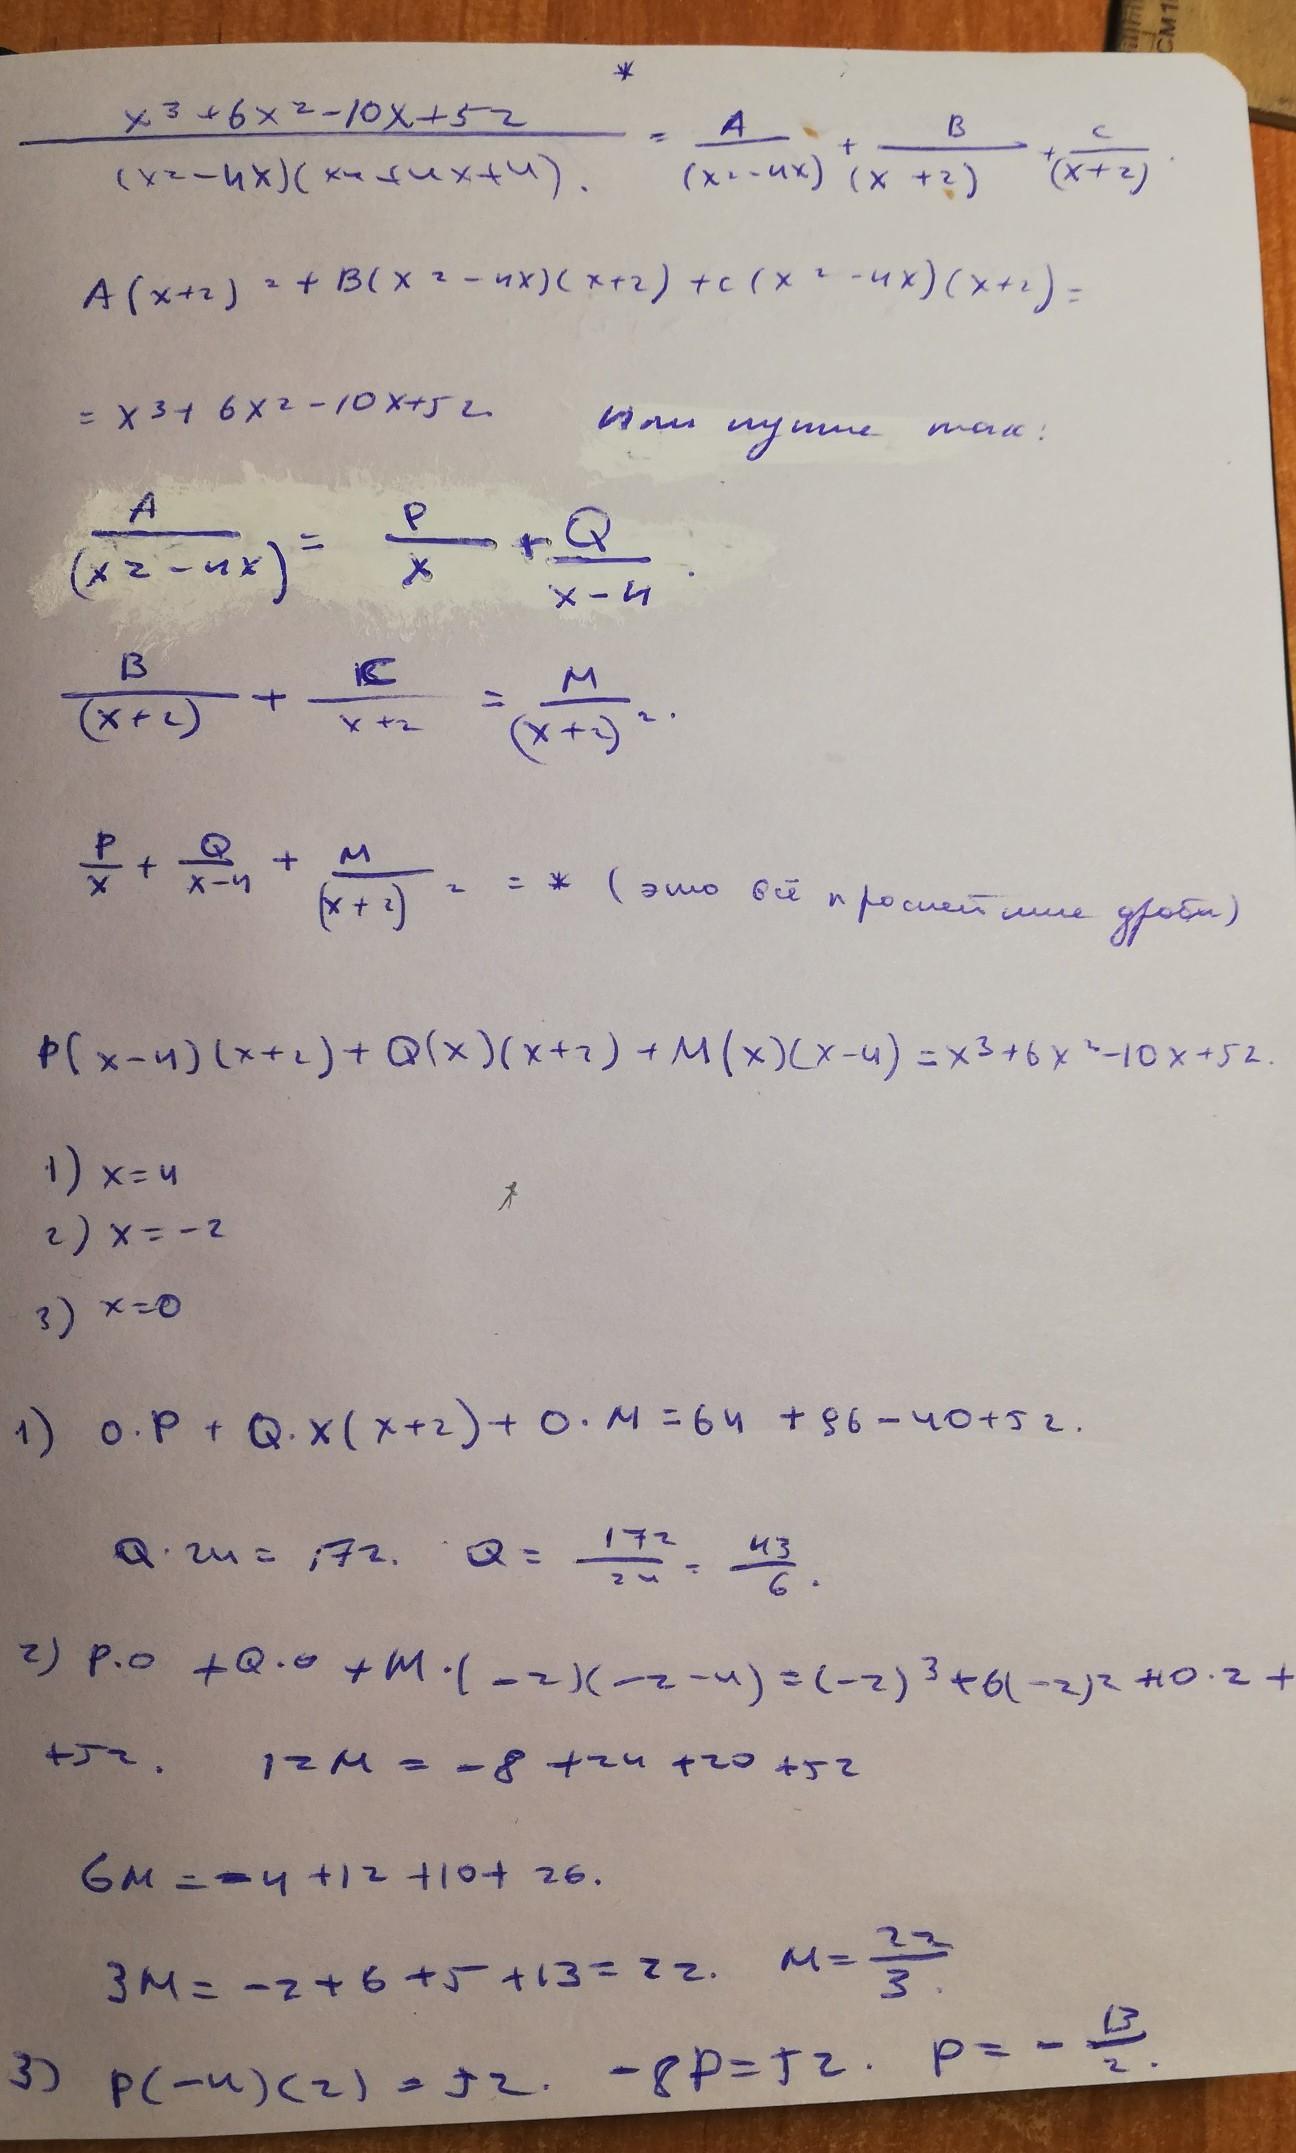 *
x³+6x²-10x+52 / (x²-4x)(x²+4x+4). = A / (x²-4x) + B / (x+2) + C / (x+2).
A(x+2)² + B(x²-4x)(x+2) + C(x²-4x)(x+2) =
= x³+6x²-10x+52. Или лучше так:
A / (x²-4x) = P / x + Q / x-4.
B / (x+2) + C / x+2 = M / (x+2)².
P / x + Q / x-4 + M / (x+2)² = * (это всё простейшие дроби)
P(x-4)(x+2) + Q(x)(x+2) + M(x)(x-4) = x³+6x²-10x+52.
1) x=4
2) x=-2
3) x=0
1) 0·P + Q·x(x+2) + 0·M = 64 + 96 - 40 + 52.
Q·24 = 172. Q = 172 / 24 = 43 / 6.
2) P·0 + Q·0 + M·(-2)(-2-4) = (-2)³+6(-2)²+10·2+
+52. 12M = -8 +24 +20 +52
6M = -4 +12 +10+ 26.
3M = -2 + 6 + 5 + 13 = 22. M = 22 / 3.
3) P(-4)(2) = 52. -8P = 52. P = - 13 / 2.